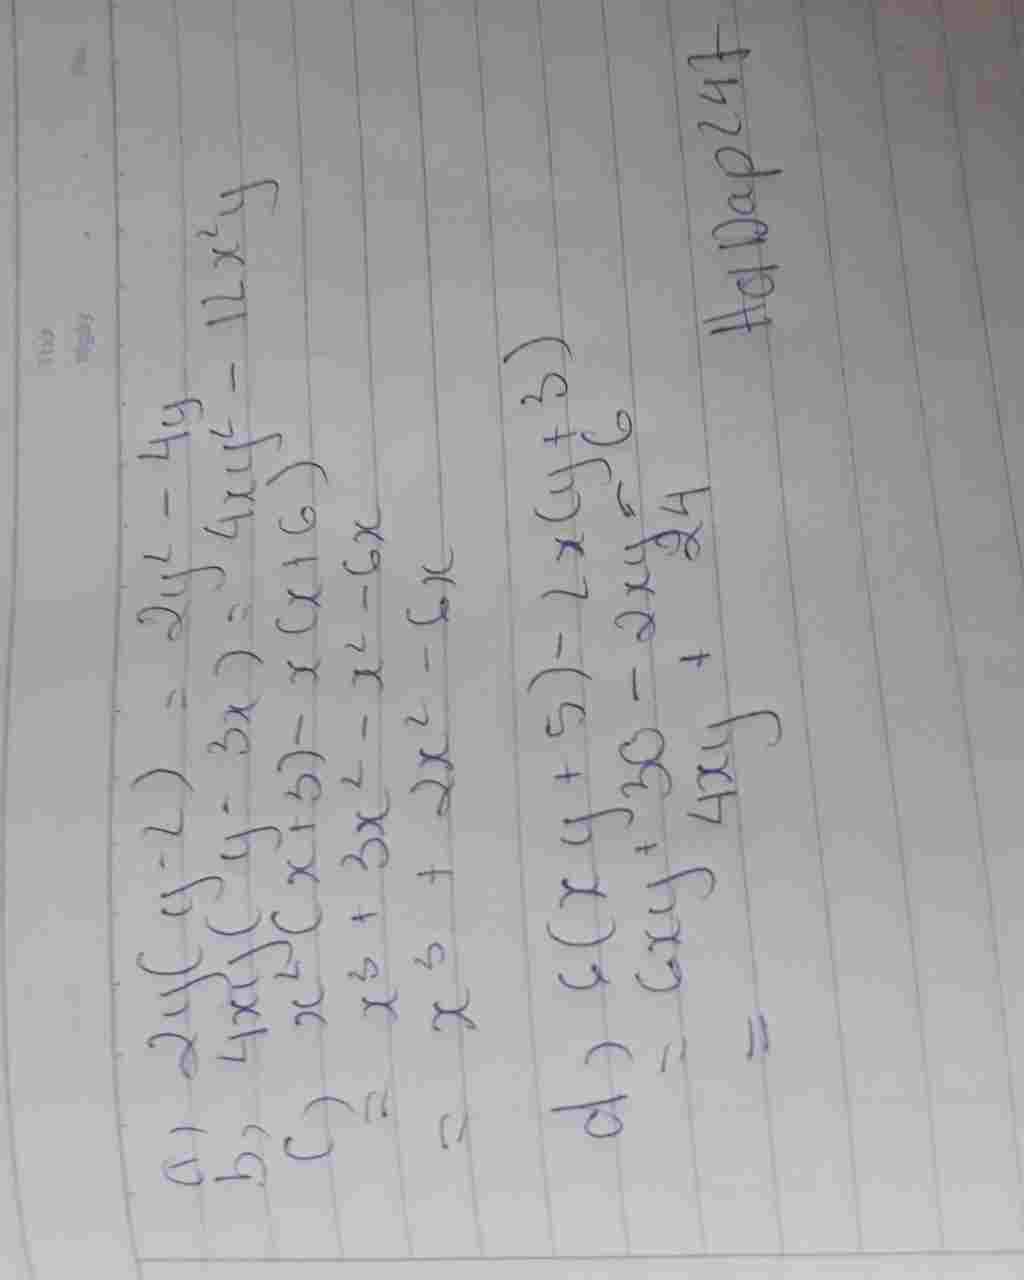 Thứ
Ngày
a, 2y(y-2) = 2y² - 4y
b, 4xy(y - 3x) = 4xy² - 12x²y
c) x²(x+3) - x(x+6)
= x³ + 3x² - x² - 6x
= x³ + 2x² - 6x
d) 6(xy + 5) - 2x(y+3)
= 6xy + 30 - 2xy - 6
= 4xy + 24
HoiDap247